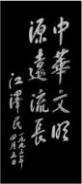 中華文明
源遠流長
江澤民
一九九二年
四月五日